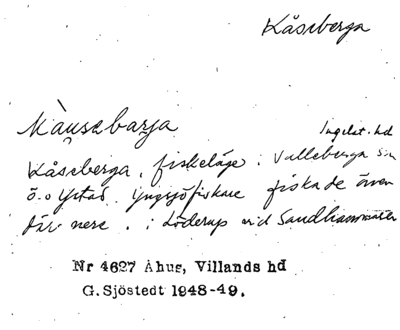 Kåseberga
Kåuseba​rja
Ingelst. hd
Kåseberga, fiskeläge i Valleberga sn
ö. o Ystad. Yngsjöfiskare fiskade även
där nere. i Löderup vid Sandhammaren
Nr 4627 Åhus, Villands hd
G. Sjöstedt 1948-49.